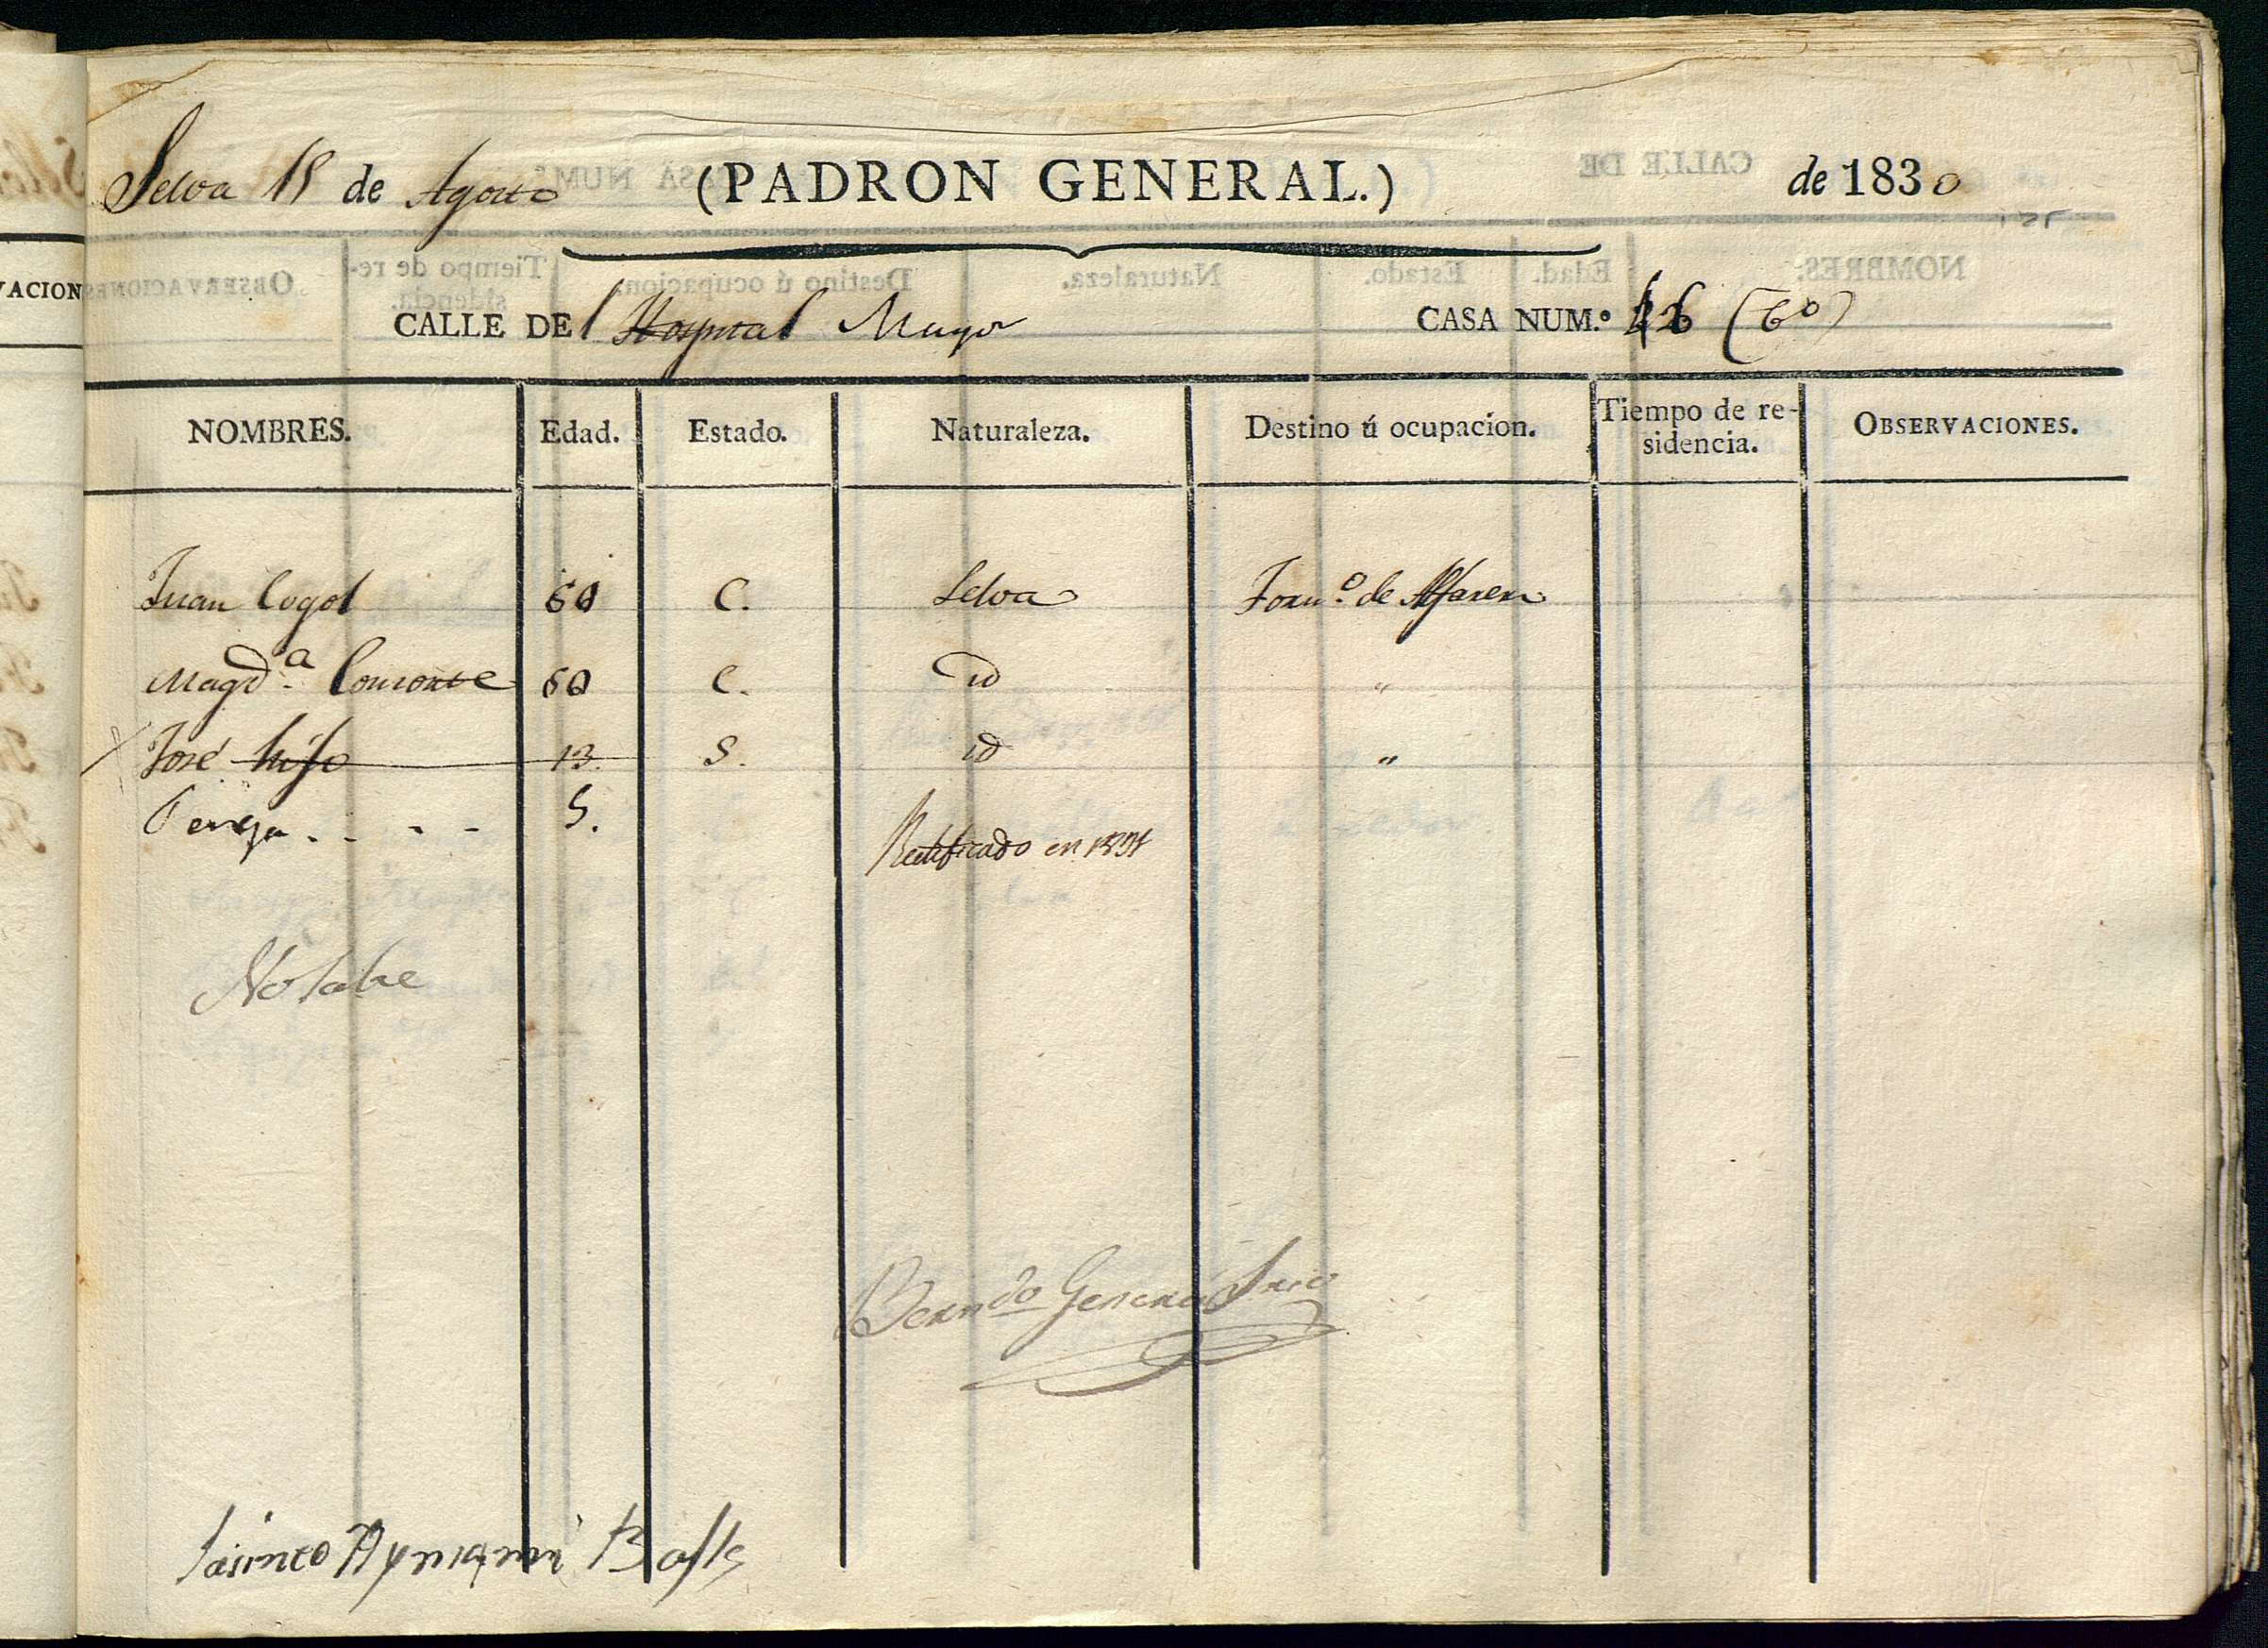 Selva 15 de Agosto (PADRON GENERAL.) de 1830
CALLE DEl Hospital Mayor CASA NUM.º 26 (6º)
NOMBRES. Edad. Estado. Naturaleza. Destino ú ocupacion. Tiempo de residencia. OBSERVACIONES.
Juan Cogol 60 C. Selva Forn.º de Alfarer
Magd.ª Consorte 60 C. id "
José hijo 13. S. id "
Teresa - - - - 5.
Rectificado en
No sabe
Bern.do Sñrio
Jasinto Aymami Balle